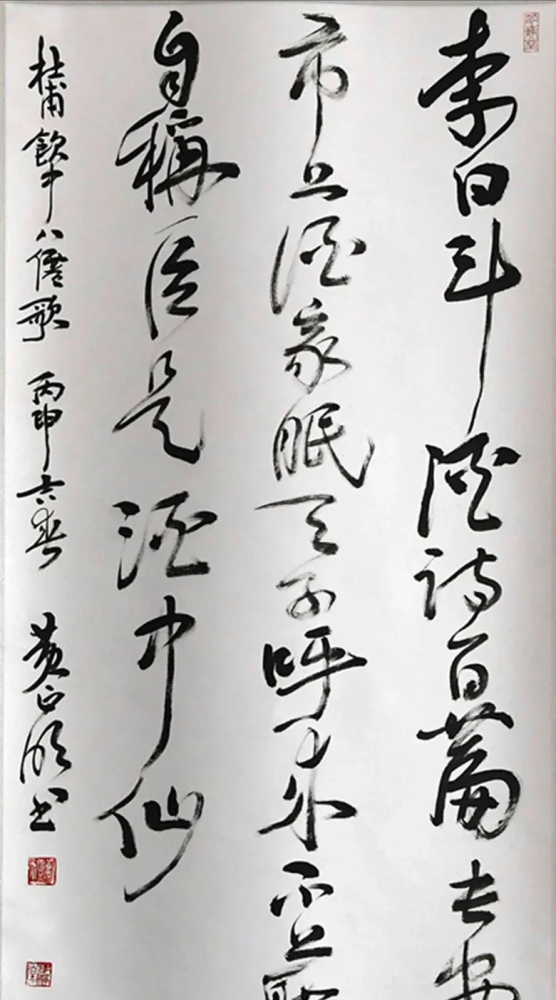 李白斗酒诗百篇长安
市上酒家眠天子呼来不上船
自稱臣是酒中仙
杜甫飲中八僊歌 丙申 春 黄 书